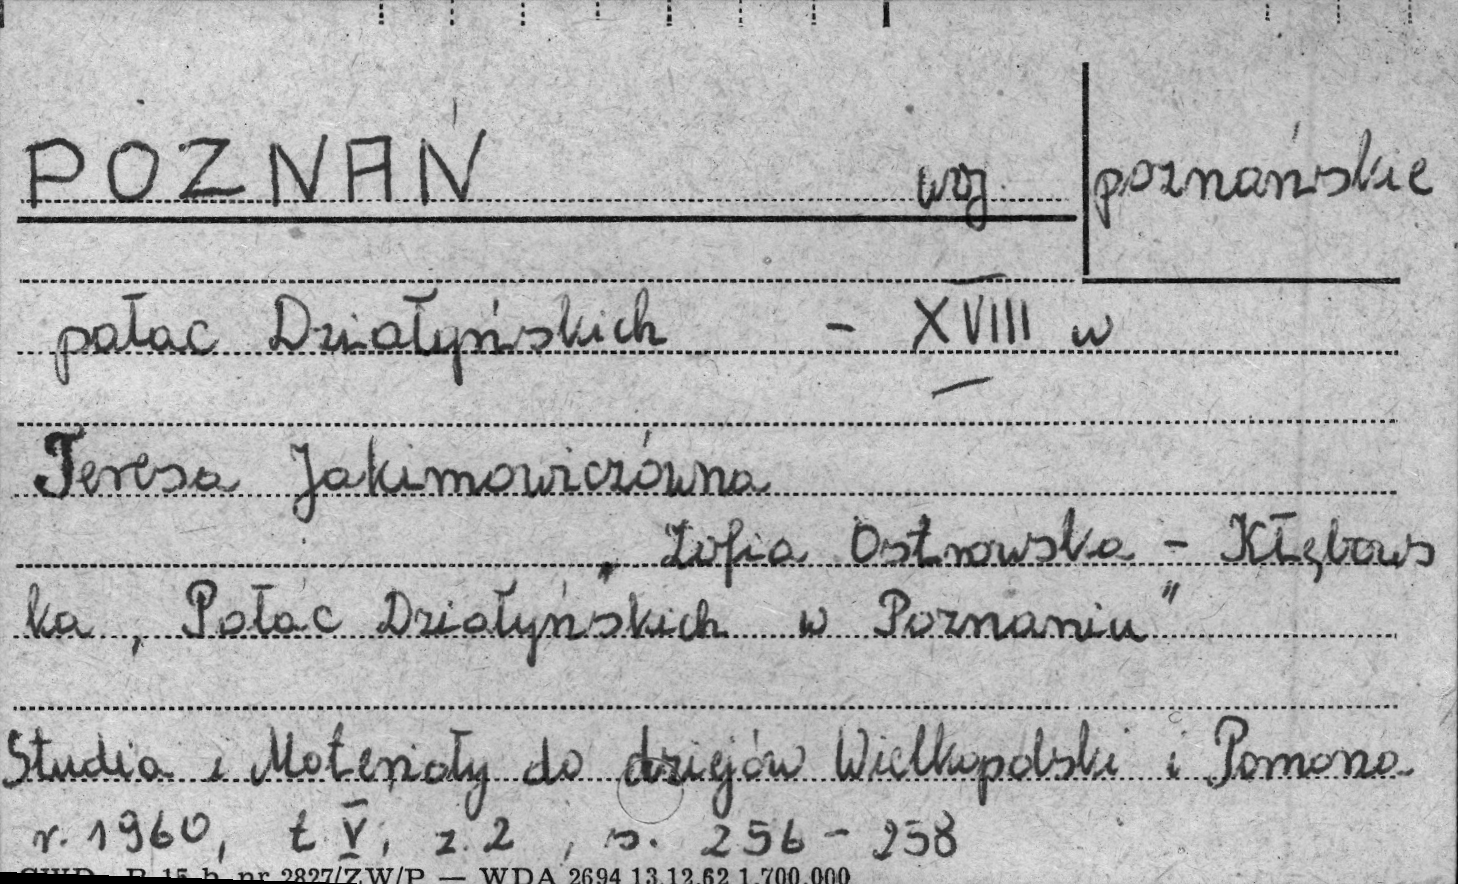 POZNAŃ woj. poznańskie
pałac Działyńskich - XVIII w
Teresa Jakimowiczówna
Zofia Ostrowska - Kłębows
ka, "Pałac Działyńskich w Poznaniu"
Studia i Materiały do dziejów Wielkopolski i Pomorza
r. 1960, t. V, z. 2, s. 256 - 258
nr 2827/ZW/P — WDA 2694 13.12.62 1.700.000